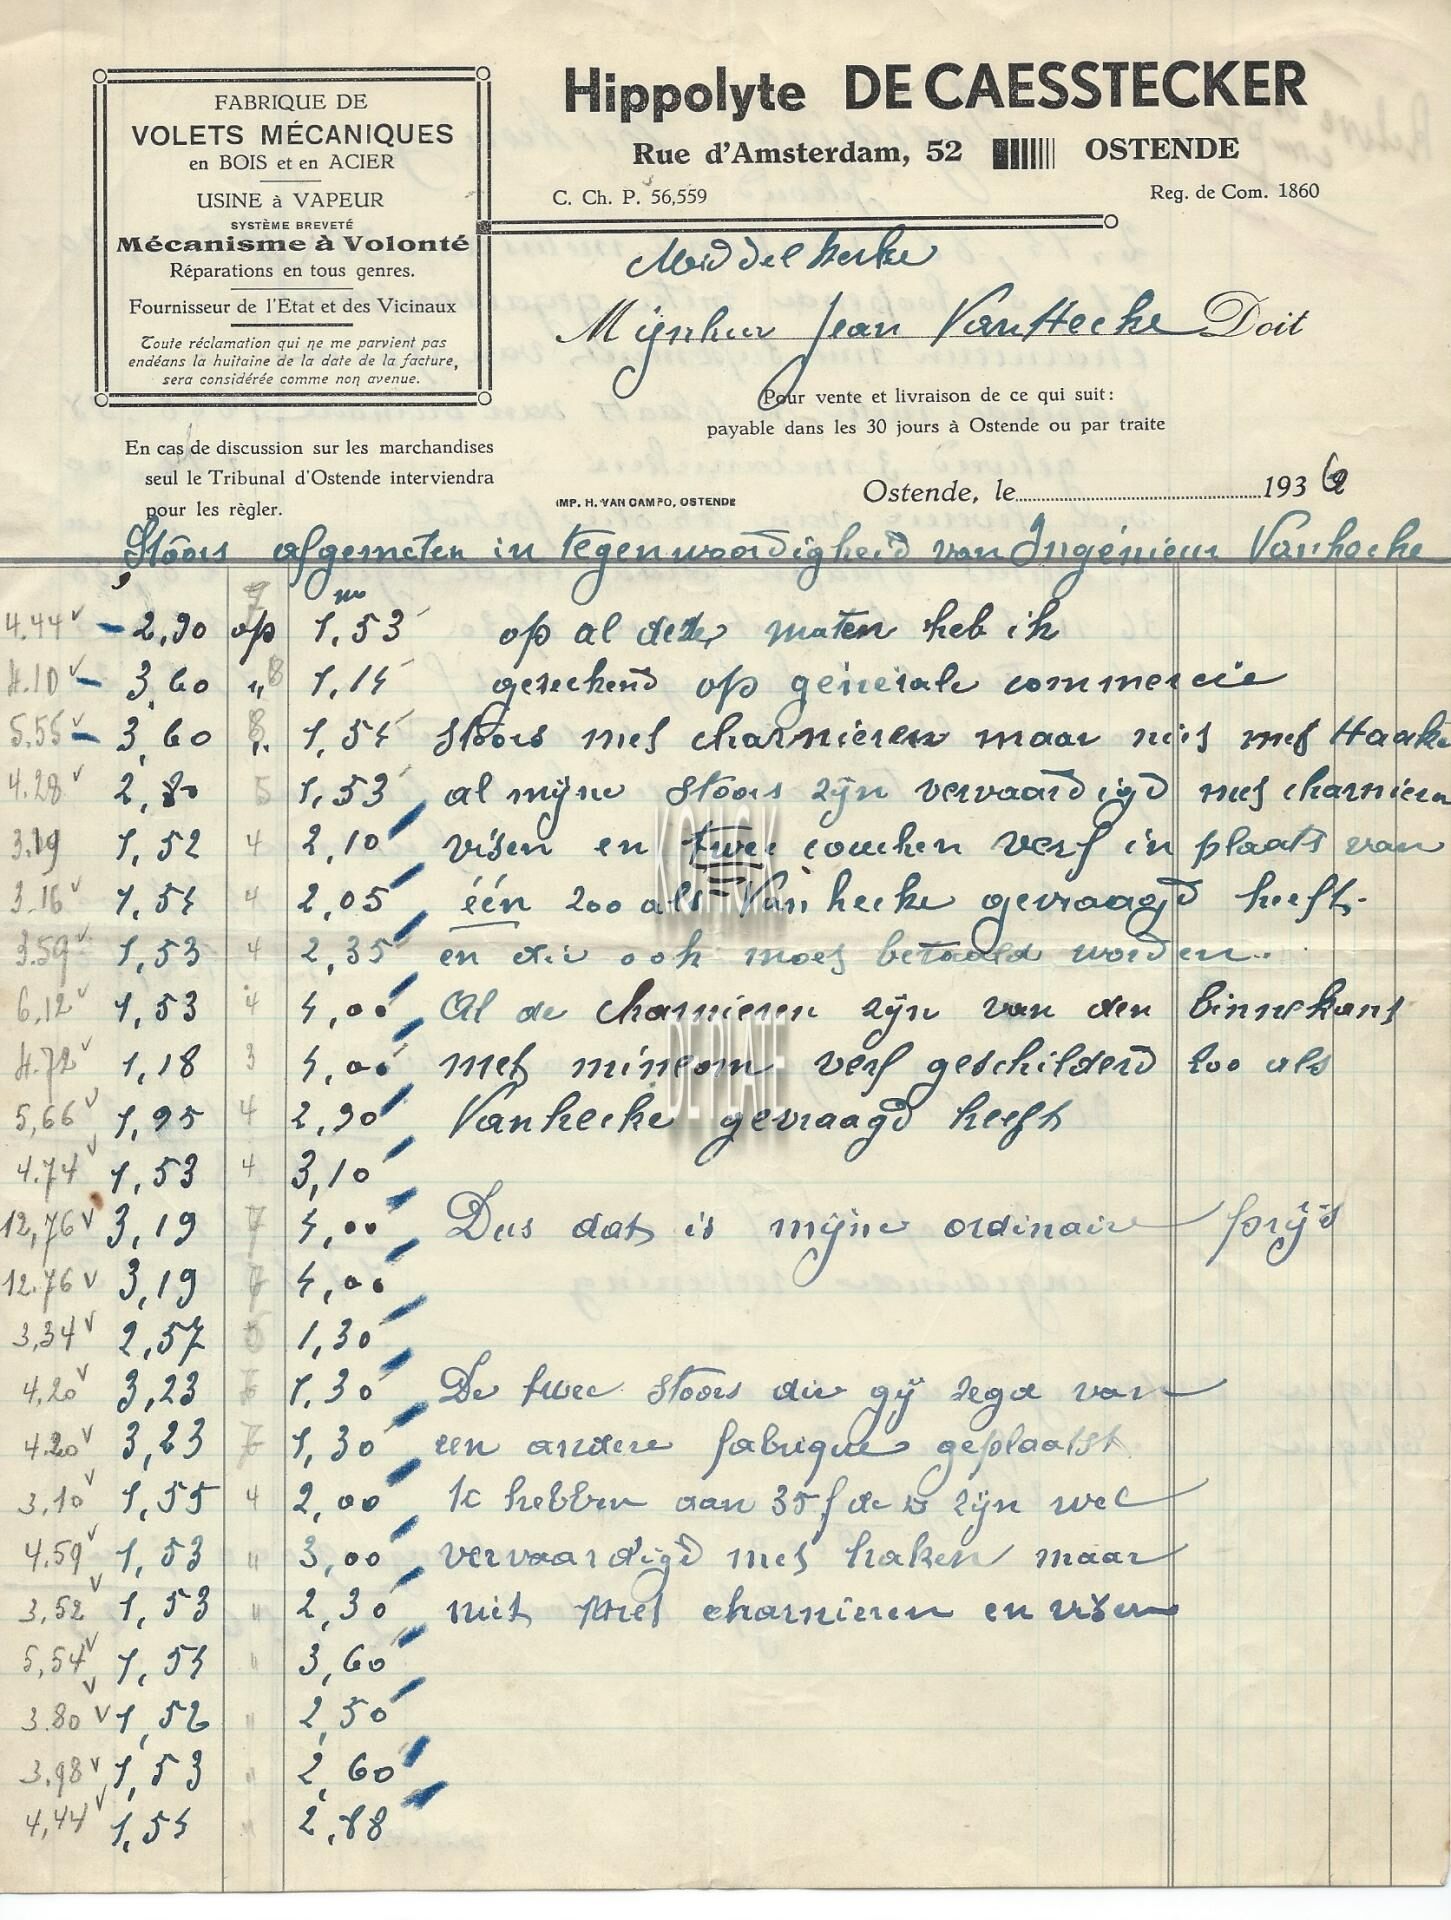 FABRIQUE DE
VOLETS MÉCANIQUES
en BOIS et en ACIER
USINE à VAPEUR
SYSTÈME BREVETÉ
Mécanisme à Volonté
Réparations en tous genres.
Fournisseur de l'Etat et des Vicinaux
Toute réclamation qui ne me parvient pas
endéans la huitaine de la date de la facture,
sera considérée comme non avenue.
En cas de discussion sur les marchandises
seul le Tribunal d'Ostende interviendra
pour les règler.
Hippolyte DE CAESSTECKER
Rue d'Amsterdam, 52 OSTENDE
C. Ch. P. 56,559 Reg. de Com. 1860
Middelkerke
Mijnheer Jean VanHecke Doit
Pour vente et livraison de ce qui suit:
payable dans les 30 jours à Ostende ou par traite
IMP. H. VAN CAMPO, OSTENDE
Ostende, le 1936
Stoors afgemeten in tegenwoordigheid van Ingénieur Vanhecke
4.44 v 2,90 op 1,53 op al deze maten heb ik
4.10 v 3,60 " 8 1,14 gerekend op génerale commercie
5.55 v 3,60 " 8 1,54 stoors met charnieren maar niet met Haake
4.28 v 2,80 5 1,53 al mijne stoors zijn vervaardigd met charnieren
3.19 1,52 4 2,10 visen en twee couchen verf in plaats van
3.16 v 1,54 4 2,05 één zoo als Vanhecke gevraagd heeft.
3.59 v 1,53 4 2,35 en die ook moet betaald worden.
6,12 v 1,53 4 4,00 Al de charnieren zijn van den binnekant
4.72 v 1,18 3 4,00 met mineom verf geschilderd zoo als
5,66 v 1,95 4 2,90 Vanhecke gevraagd heeft
4.74 v 1,53 4 3,10
12,76 v 3,19 7 4,00 Dus dat is mijne ordinaire prijs
12.76 v 3,19 7 4,00
3,34 v 2,57 5 1,30
4,20 v 3,23 7 1,30 De twee stoors die gij zegd van
4.20 v 3,23 7 1,30 een andere fabrique geplaatst
3,10 v 1,55 4 2,00 te hebben aan 35 f de zijn wel
4.59 v 1,53 " 3,00 vervaardigd met haken maar
3,52 v 1,53 " 2,30 niet met charnieren en visen
5,54 v 1,54 " 3,60
3.80 v 1,52 " 2,50
3.98 v 1,53 " 2,60
4,44 v 1,54 " 2,88
KON.H.K.
DE PLATE